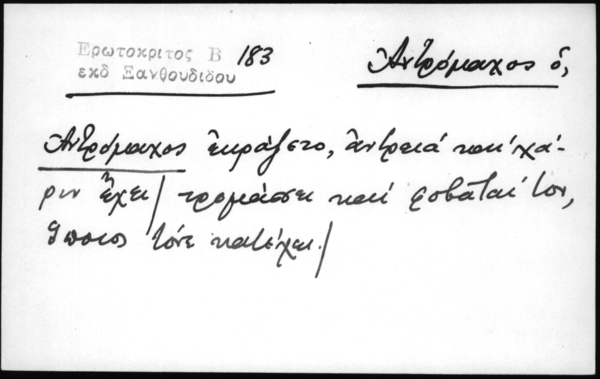 Ερωτοκριτος Β 183
εκδ Ξανθουδιδου
Ἀντρόμαχος ὁ,
Ἀντρόμαχος ἐκράζετο, ἀντρειά και χά-
ριν ἔχει/ τρομάσσει καί φοβᾶταί τον,
ὅποιος τόνε κατέχει./